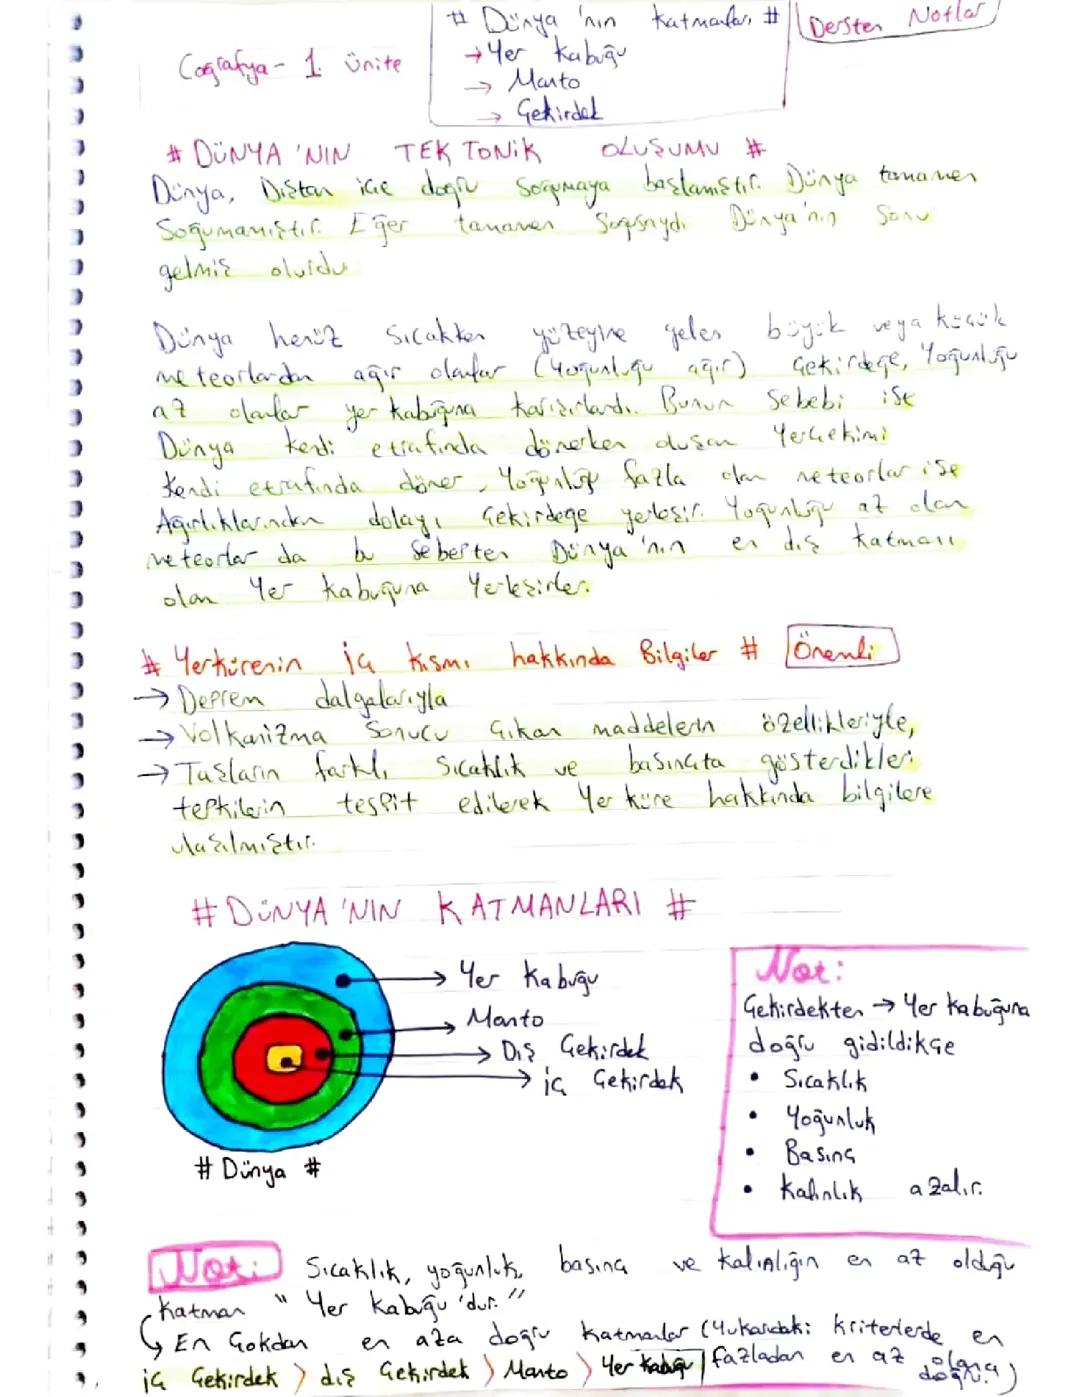 # Dünya 'nın Katmanları #
Dersten Notlar
Coğrafya - 1. ünite
→ Yer Kabuğu
→ Manto
→ Çekirdek
# DÜNYA 'NIN TEKTONİK OLUŞUMU #
Dünya, Dıştan içe doğru Soğumaya başlamıştır. Dünya tamamen
Soğumamıştır. Eğer tamamen Soğusaydı Dünya'nın Sonu
gelmiş olurdu
Dünya henüz Sıcakken yüzeyine gelen büyük veya küçük
meteorlardan ağır olanlar (Yoğunluğu ağır) Çekirdeğe, Yoğunluğu
az olanlar yer kabuğuna karışırlardı. Bunun Sebebi ise
Dünya kendi etrafında dönerken oluşan Yerçekimi
Kendi etrafında döner, Yoğunluğu fazla olan meteorlar ise
Ağırlıklarından dolayı Çekirdeğe yerleşir. Yoğunluğu az olan
meteorlar da bu Sebepten Dünya 'nın en dış katmanı
olan Yer kabuğuna Yerleşirler.
# Yerkürenin iç kısmı hakkında Bilgiler # Önemli
→ Deprem dalgalarıyla
→ Volkanizma Sonucu Çıkan maddelerin özellikleriyle,
→ Taşların farklı Sıcaklık ve basınçta gösterdikleri
tepkilerin tespit edilerek Yer küre hakkında bilgilere
ulaşılmıştır.
# DÜNYA 'NIN KATMANLARI #
→ Yer Kabuğu
→ Manto
→ Dış Çekirdek
→ iç Çekirdek
# Dünya #
Not:
Çekirdekten → Yer Kabuğuna
doğru gidildikçe
• Sıcaklık
• Yoğunluk
• Basınç
• Kalınlık azalır.
Not: Sıcaklık, yoğunluk, basınç ve kalınlığın en az olduğu
katman " Yer Kabuğu 'dur. "
↳ En Çokdan en aza doğru Katmanlar (Yukarıdaki kriterlerde en
fazladan en az olana doğru.)
iç Çekirdek > dış Çekirdek > Manto > Yer Kabuğu